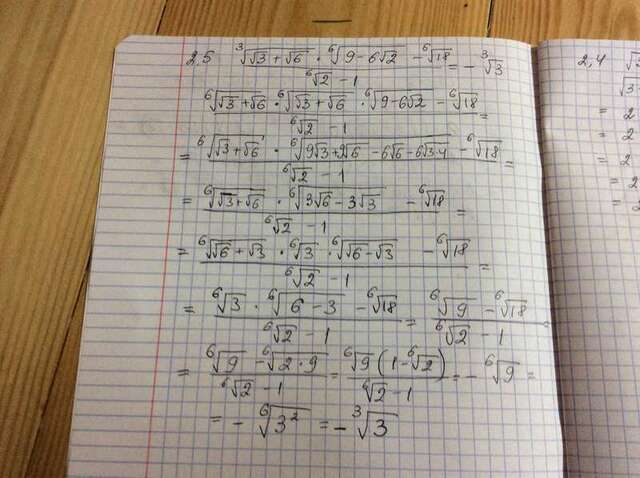 2,5 (∛(√3 + √6) · ⁶√(9 − 6√2) − ⁶√18) / (⁶√2 − 1) = − ∛3
(⁶√(√3 + √6) · ⁶√(√3 + √6) · ⁶√(9 − 6√2) − ⁶√18) / (⁶√2 − 1) =
= (⁶√(√3 + √6) · ⁶√(9√3 + 9√6 − 6√6 − 6√(3·4)) − ⁶√18) / (⁶√2 − 1) =
= (⁶√(√3 + √6) · ⁶√(3√6 − 3√3) − ⁶√18) / (⁶√2 − 1) =
= (⁶√(√6 + √3) · ⁶√3 · ⁶√(√6 − √3) − ⁶√18) / (⁶√2 − 1) =
= (⁶√3 · ⁶√(6 − 3) − ⁶√18) / (⁶√2 − 1) = (⁶√9 − ⁶√18) / (⁶√2 − 1) =
= (⁶√9 − ⁶√(2·9)) / (⁶√2 − 1) = ⁶√9 (1 − ⁶√2) / (⁶√2 − 1) = − ⁶√9 =
= − ⁶√(3²) = − ∛3
2,4
=
= 2
= 2
= 2
= 2
= 2